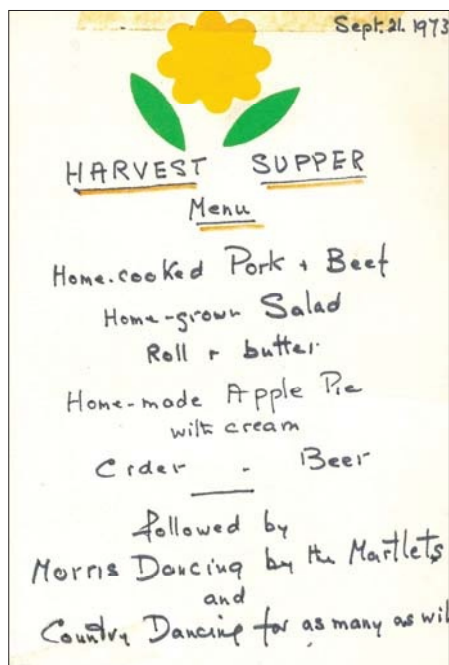 Sept. 21. 1973
HARVEST SUPPER
Menu
Home-cooked Pork + Beef
Home-grown Salad
Roll + butter
Home-made Apple Pie
with cream
Cider - Beer
followed by
Morris Dancing by the Martlets
and
Country Dancing for as many as wil